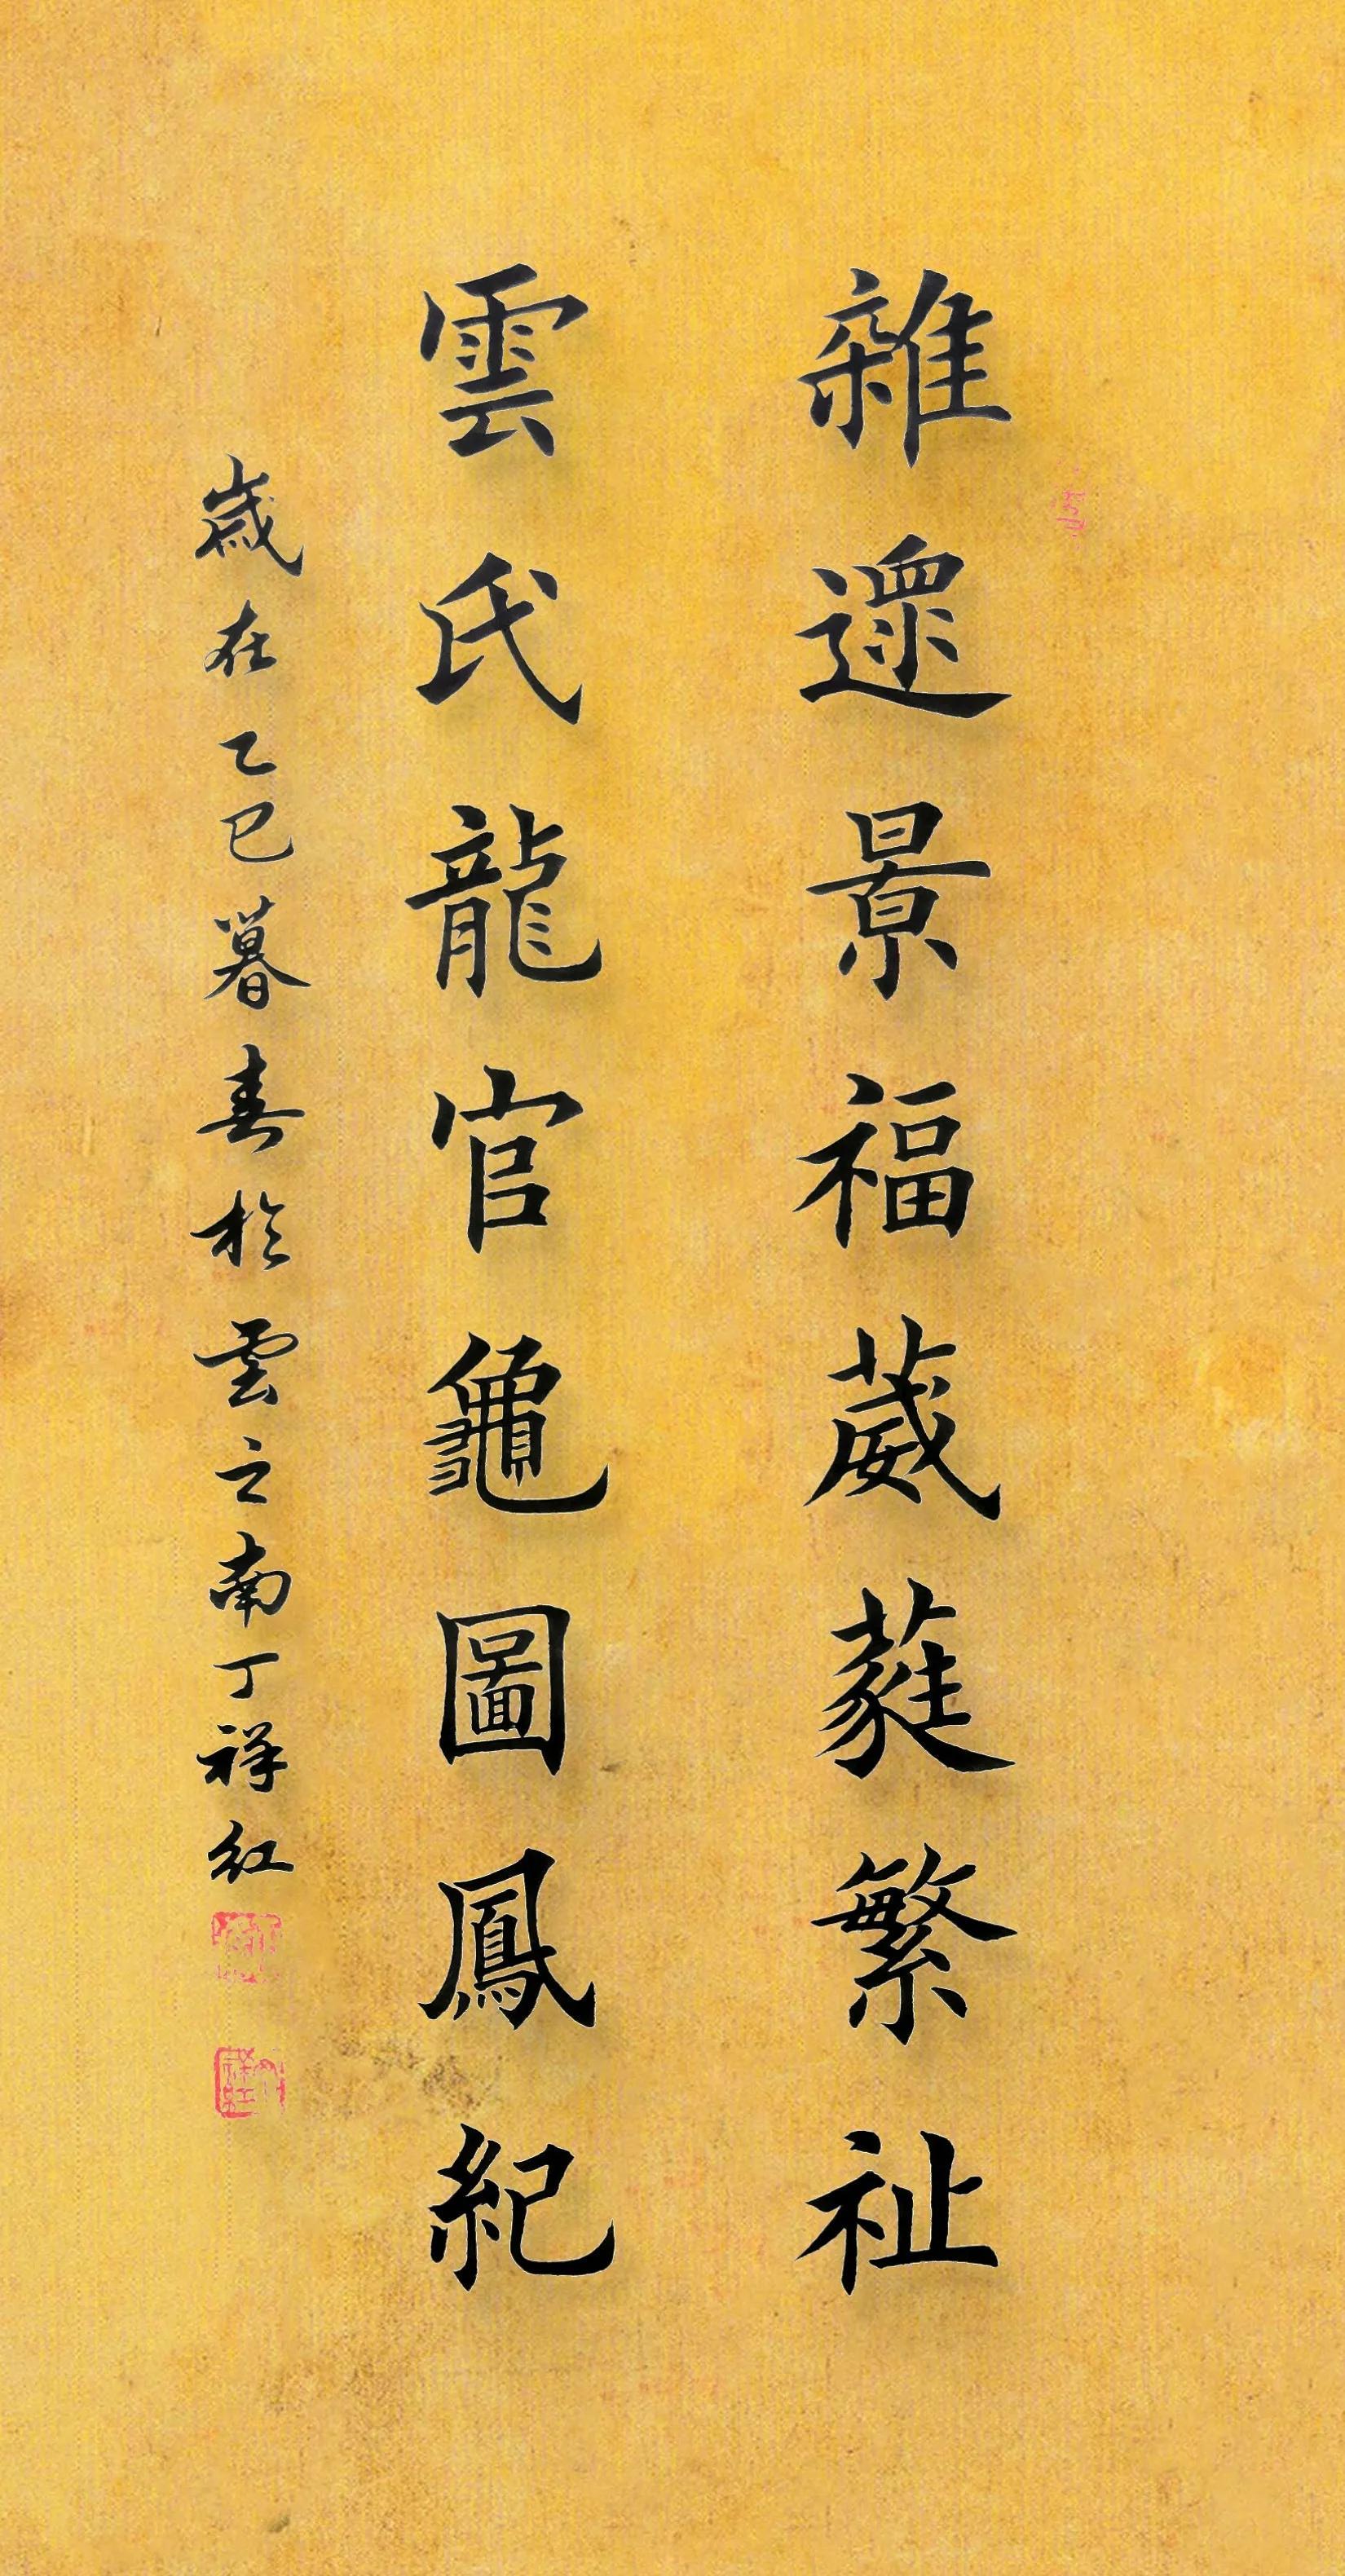 雜遝景福葳蕤繁祉
雲氏龍官龜圖鳳紀
歲在乙巳暮春於雲之南丁祥红